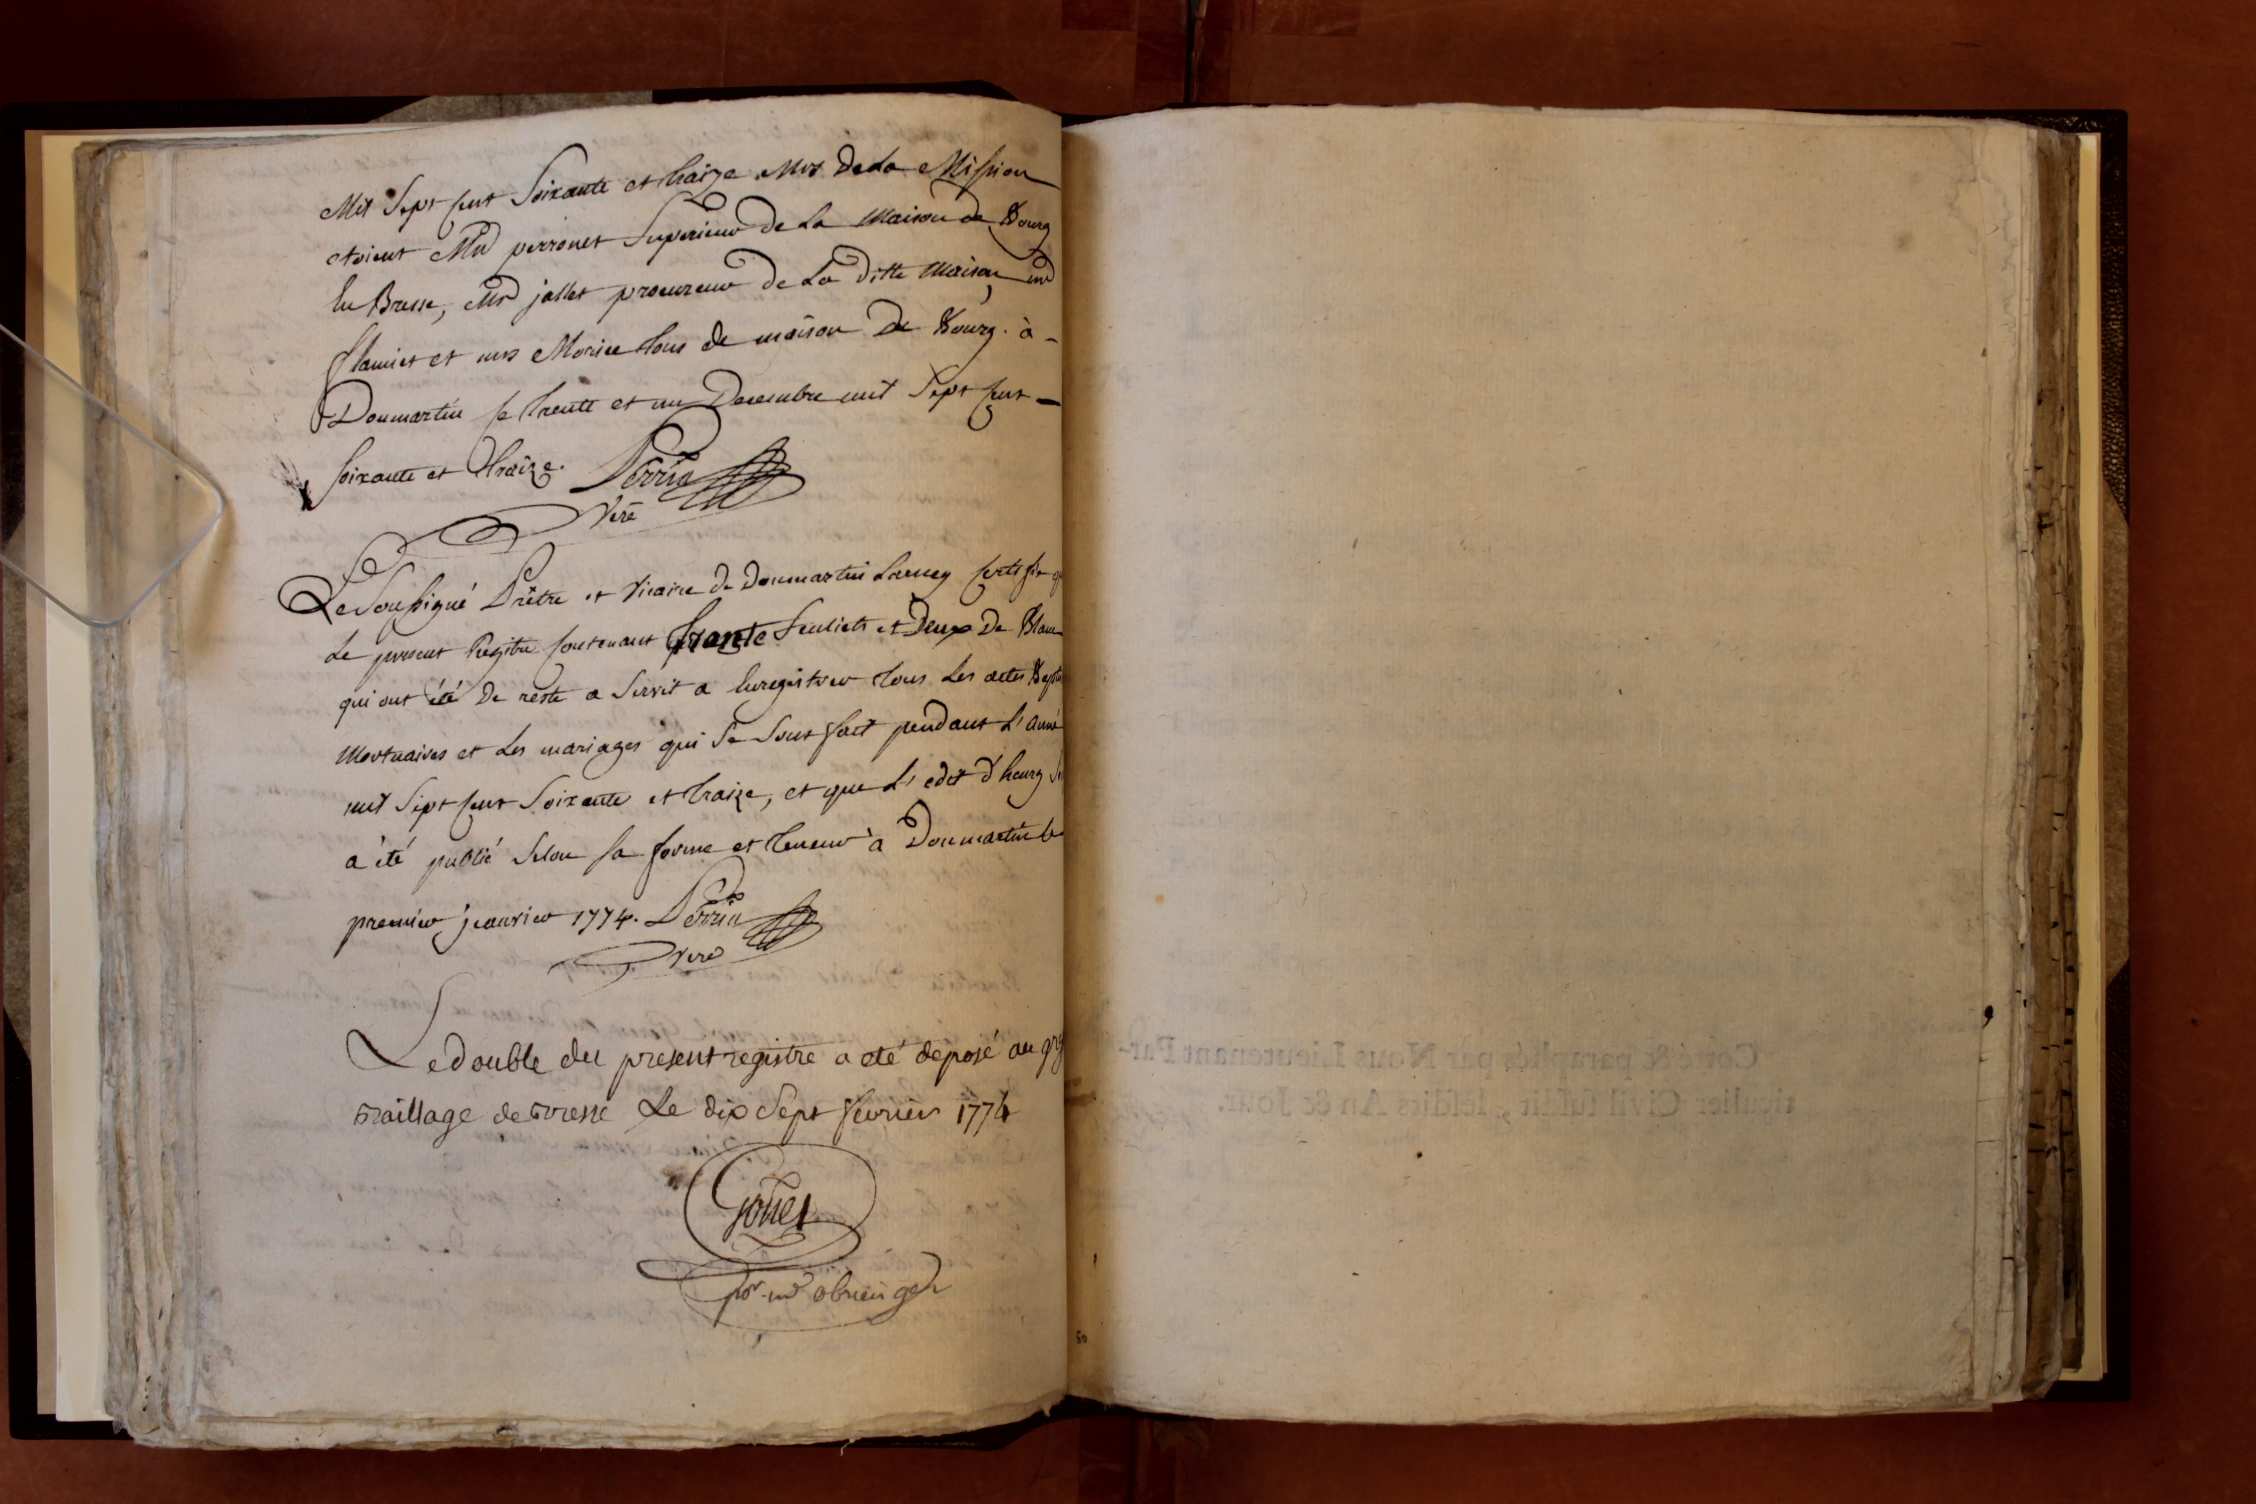 Mil Sept Cent Soixante et traize Mrs de la Mission
etoient Mr perronet Superieur de La Maison de Bourg
En Bresse, Mr jallet procureur de La ditte Maison, mr
flamiet et mrs Morice tous de maison De Bourg. à
Donmartin ce trente et un Decembre mil Sept Cent
Soixante et traize. Perrin
vire
Le Soussigné Prêtre et vicaire de Donmartin Larney Certifie
Le present Registre Contenant trante feuliets et Deux De Blanc
qui ont été De reste a Servit a Enregistrer tous Les actes
Mortuaires et Les mariages qui Se Sont fait pendant L'anné
mil Sept Cent Soixante et traize, et que L'edit d'henry
a été publié Selon Sa forme et teneur à Donmartin le
premier janvier 1774. Perrin
vire
Le double du present registre a eté deposé au
Baillage de Bresse Le dix Sept fevrier 1774
pr. mr
Cotté & paraphé par Nous Lieutenant Par-
ticulier Civil susdit, lesdits An & Jour.